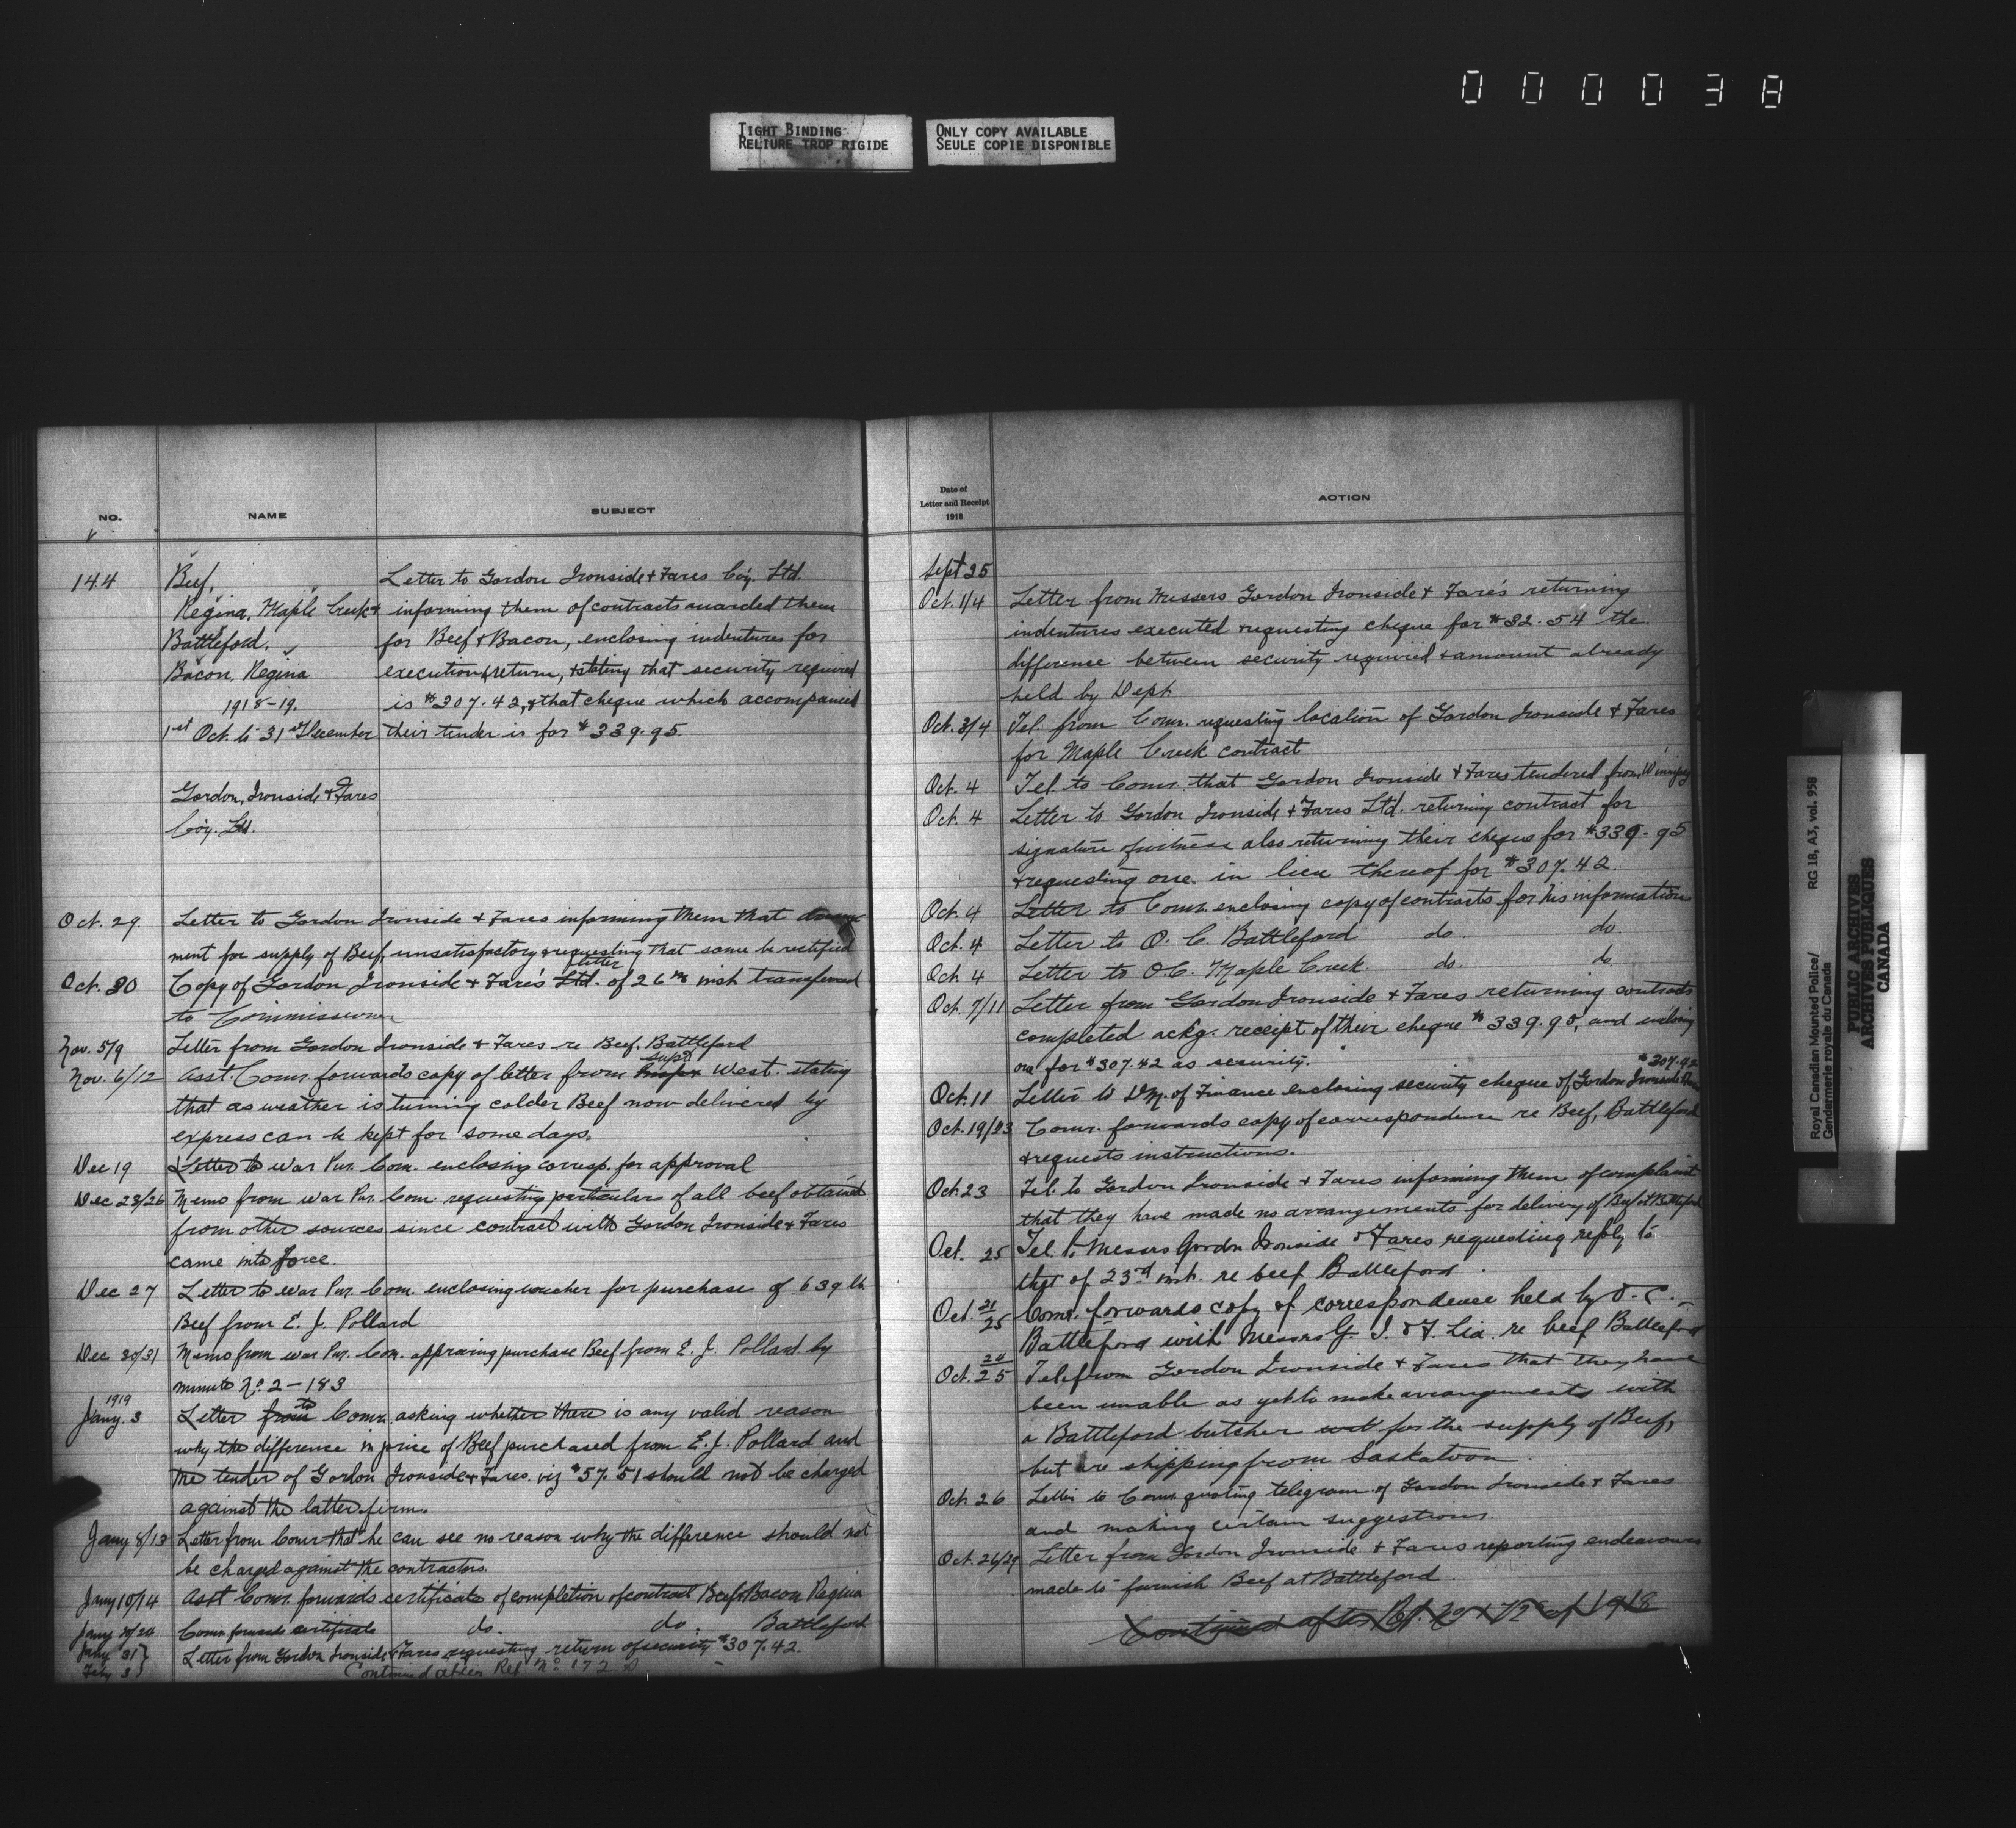 000038
TIGHT BINDING
RELIURE TROP RIGIDE
ONLY COPY AVAILABLE
SEULE COPIE DISPONIBLE
NO.
NAME
SUBJECT
144
Beef,
Regina, Maple Creek &
Battleford.
Bacon, Regina
1918-19.
1st Oct. to 31st December
Gordon, Ironside & Fares
Coy. Ltd.
Letter to Gordon Ironside & Fares Coy. Ltd.
informing them of contracts awarded them
for Beef & Bacon, enclosing indentures for
execution & return, & stating that security required
is $307.42, & that cheque which accompanied
their tender is for $339.95.
Oct. 29. Letter to Gordon Ironside & Fares informing them that
ment for supply of Beef, unsatisfactory & requesting that same be rectified
Oct. 30 Copy of Gordon Ironside & Fares' Ltd. letter of 26th inst transferred
to Commissioner
Nov. 5/9 Letter from Gordon Ironside & Fares re Beef. Battleford
Nov. 6/12 Asst. Comr. forwards copy of letter from Supt West. stating
that as weather is turning colder Beef now delivered by
express can be kept for some days.
Dec 19 Letter to War Pur. Com. enclosing corresp. for approval
Dec 23/26 Memo from War Pur. Com. requesting particulars of all beef obtained
from other sources since contract with Gordon Ironside & Fares
came into force.
Dec 27 Letter to War Pur. Com. enclosing voucher for purchase of 639 lb.
Beef from E. J. Pollard
Dec 30/31 Memo from War Pur. Com. approving purchase Beef from E. J. Pollard by
minute No. 2-183
1919
Jany. 3 Letter from to Comr. asking whether there is any valid reason
why the difference in price of Beef purchased from E. J. Pollard and
the tender of Gordon Ironside & Fares. viz $57.51 should not be charged
against the latter firm.
Jany 8/13 Letter from Comr that he can see no reason why the difference should not
be charged against the contractors.
Jany 10/14 Asst Comr. forwards certificate of completion of contract Beef & Bacon Regina
Jany 20/24 Comr. forwards certificate do. do. Battleford
Jany 31
Feby 3 Letter from Gordon Ironside & Fares requesting return of security $307.42.
Continued after Ref No 172
Date of
Letter and Receipt
1918
ACTION
Sept 25
Oct. 1/4 Letter from Messers Gordon Ironside & Fare's returning
indentures executed & requesting cheque for $32.54 the
difference between security required & amount already
held by Dept.
Oct. 3/4 Tel. from Comr. requesting location of Gordon Ironside & Fares
for Maple Creek contract
Oct. 4 Tel to Comr. that Gordon Ironside & Fares tendered from Winnipeg
Oct. 4 Letter to Gordon Ironside & Fares Ltd. returning contract for
signature of witness also returning their cheque for $339.95
& requesting one in lieu thereof for $307.42.
Oct. 4 Letter to Comr. enclosing copy of contracts for his information
Oct. 4 Letter to O. C. Battleford do. do
Oct 4 Letter to O.C. Maple Creek. do. do.
Oct. 7/11 Letter from Gordon Ironside & Fares returning contracts
completed ackg. receipt of their cheque $339.95, and enclosing
one for $307.42 as security.
$307.42
Oct. 11 Letter to D.M. of Finance enclosing security cheque of Gordon Ironside Fares
Oct. 19/23 Comr. forwards copy of correspondence re Beef, Battleford
& requests instructions.
Oct. 23 Tel. to Gordon Ironside & Fares informing them of complaint
that they have made no arrangements for delivery of Beef at Battleford
Oct. 25 Tel. to Messrs Gordon Ironside & Fares requesting reply to
that of 23rd inst. re beef Battleford.
Oct. 21/25 Comr. forwards copy of correspondence held by O.C.
Battleford with Messrs G. I. & F. Ltd. re beef Battleford
Oct. 24/25 Tel. from Gordon Ironside & Fares that they have
been unable as yet to make arrangements with
a Battleford butcher for the supply of Beef,
but are shipping from Saskatoon.
Oct. 26 Letter to Comr. quoting telegram of Gordon Ironside & Fares
and making certain suggestions
Oct. 26/29 Letter from Gordon Ironside & Fares reporting endeavours
made to furnish Beef at Battleford.
Continued after Ref. of 1918
Royal Canadian Mounted Police/
Gendarmerie royale du Canada
RG 18, A3, vol. 958
PUBLIC ARCHIVES
ARCHIVES PUBLIQUES
CANADA